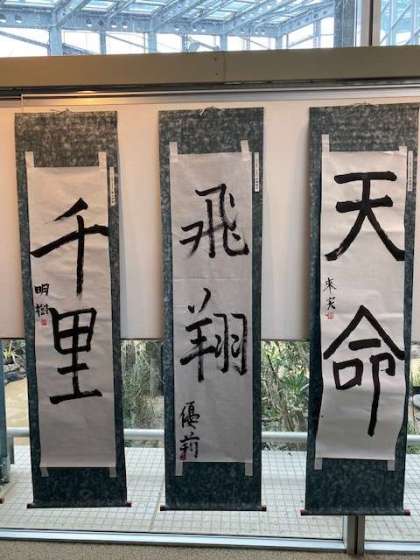 千里
明樹
飛翔
優莉
天命
来実